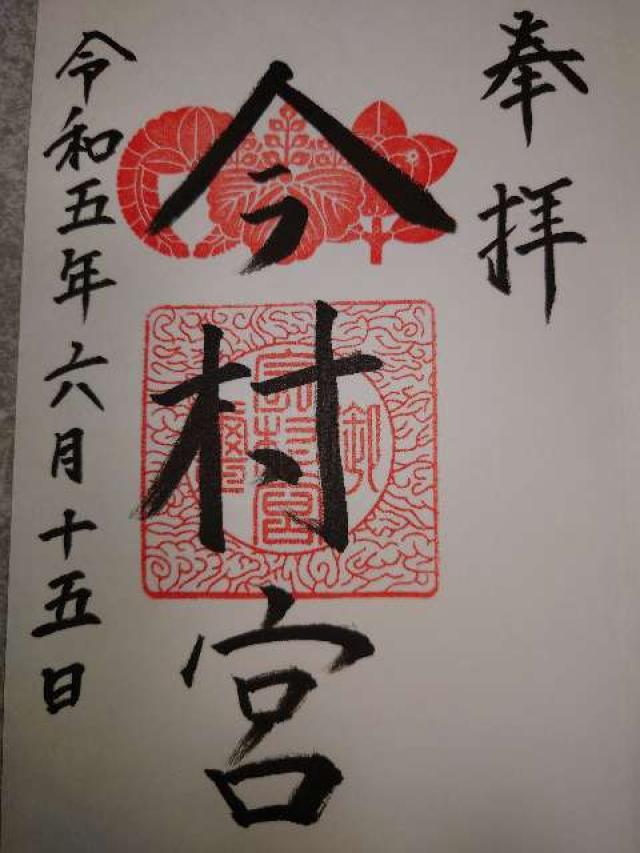 奉拝
今村宮
令和五年六月十五日